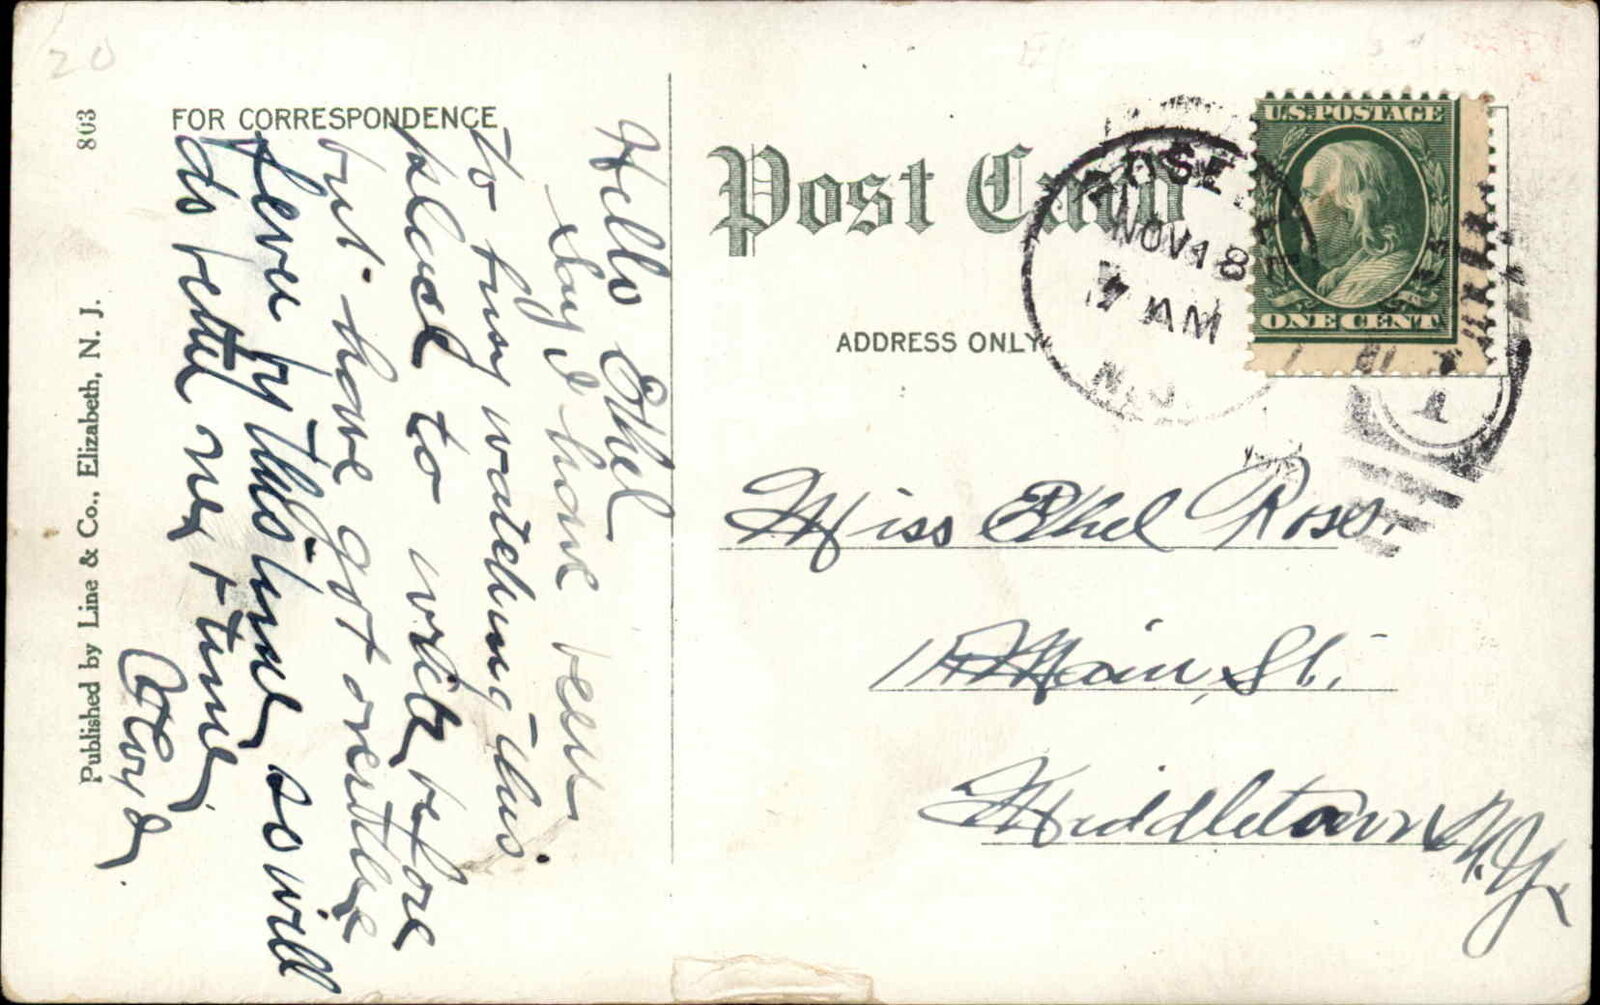 20
FOR CORRESPONDENCE
803
Published by Line & Co., Elizabeth, N. J.
Hello Ethel
Say I have been
to busy watching this
place to write before
but have got over the
fever by this time so will
do better next time.
Post Card
ADDRESS ONLY
NOV 18
7 AM
N.J.
U.S. POSTAGE
ONE CENT
1
Miss Ethel Ross.
Main St.
Middletown N.Y.